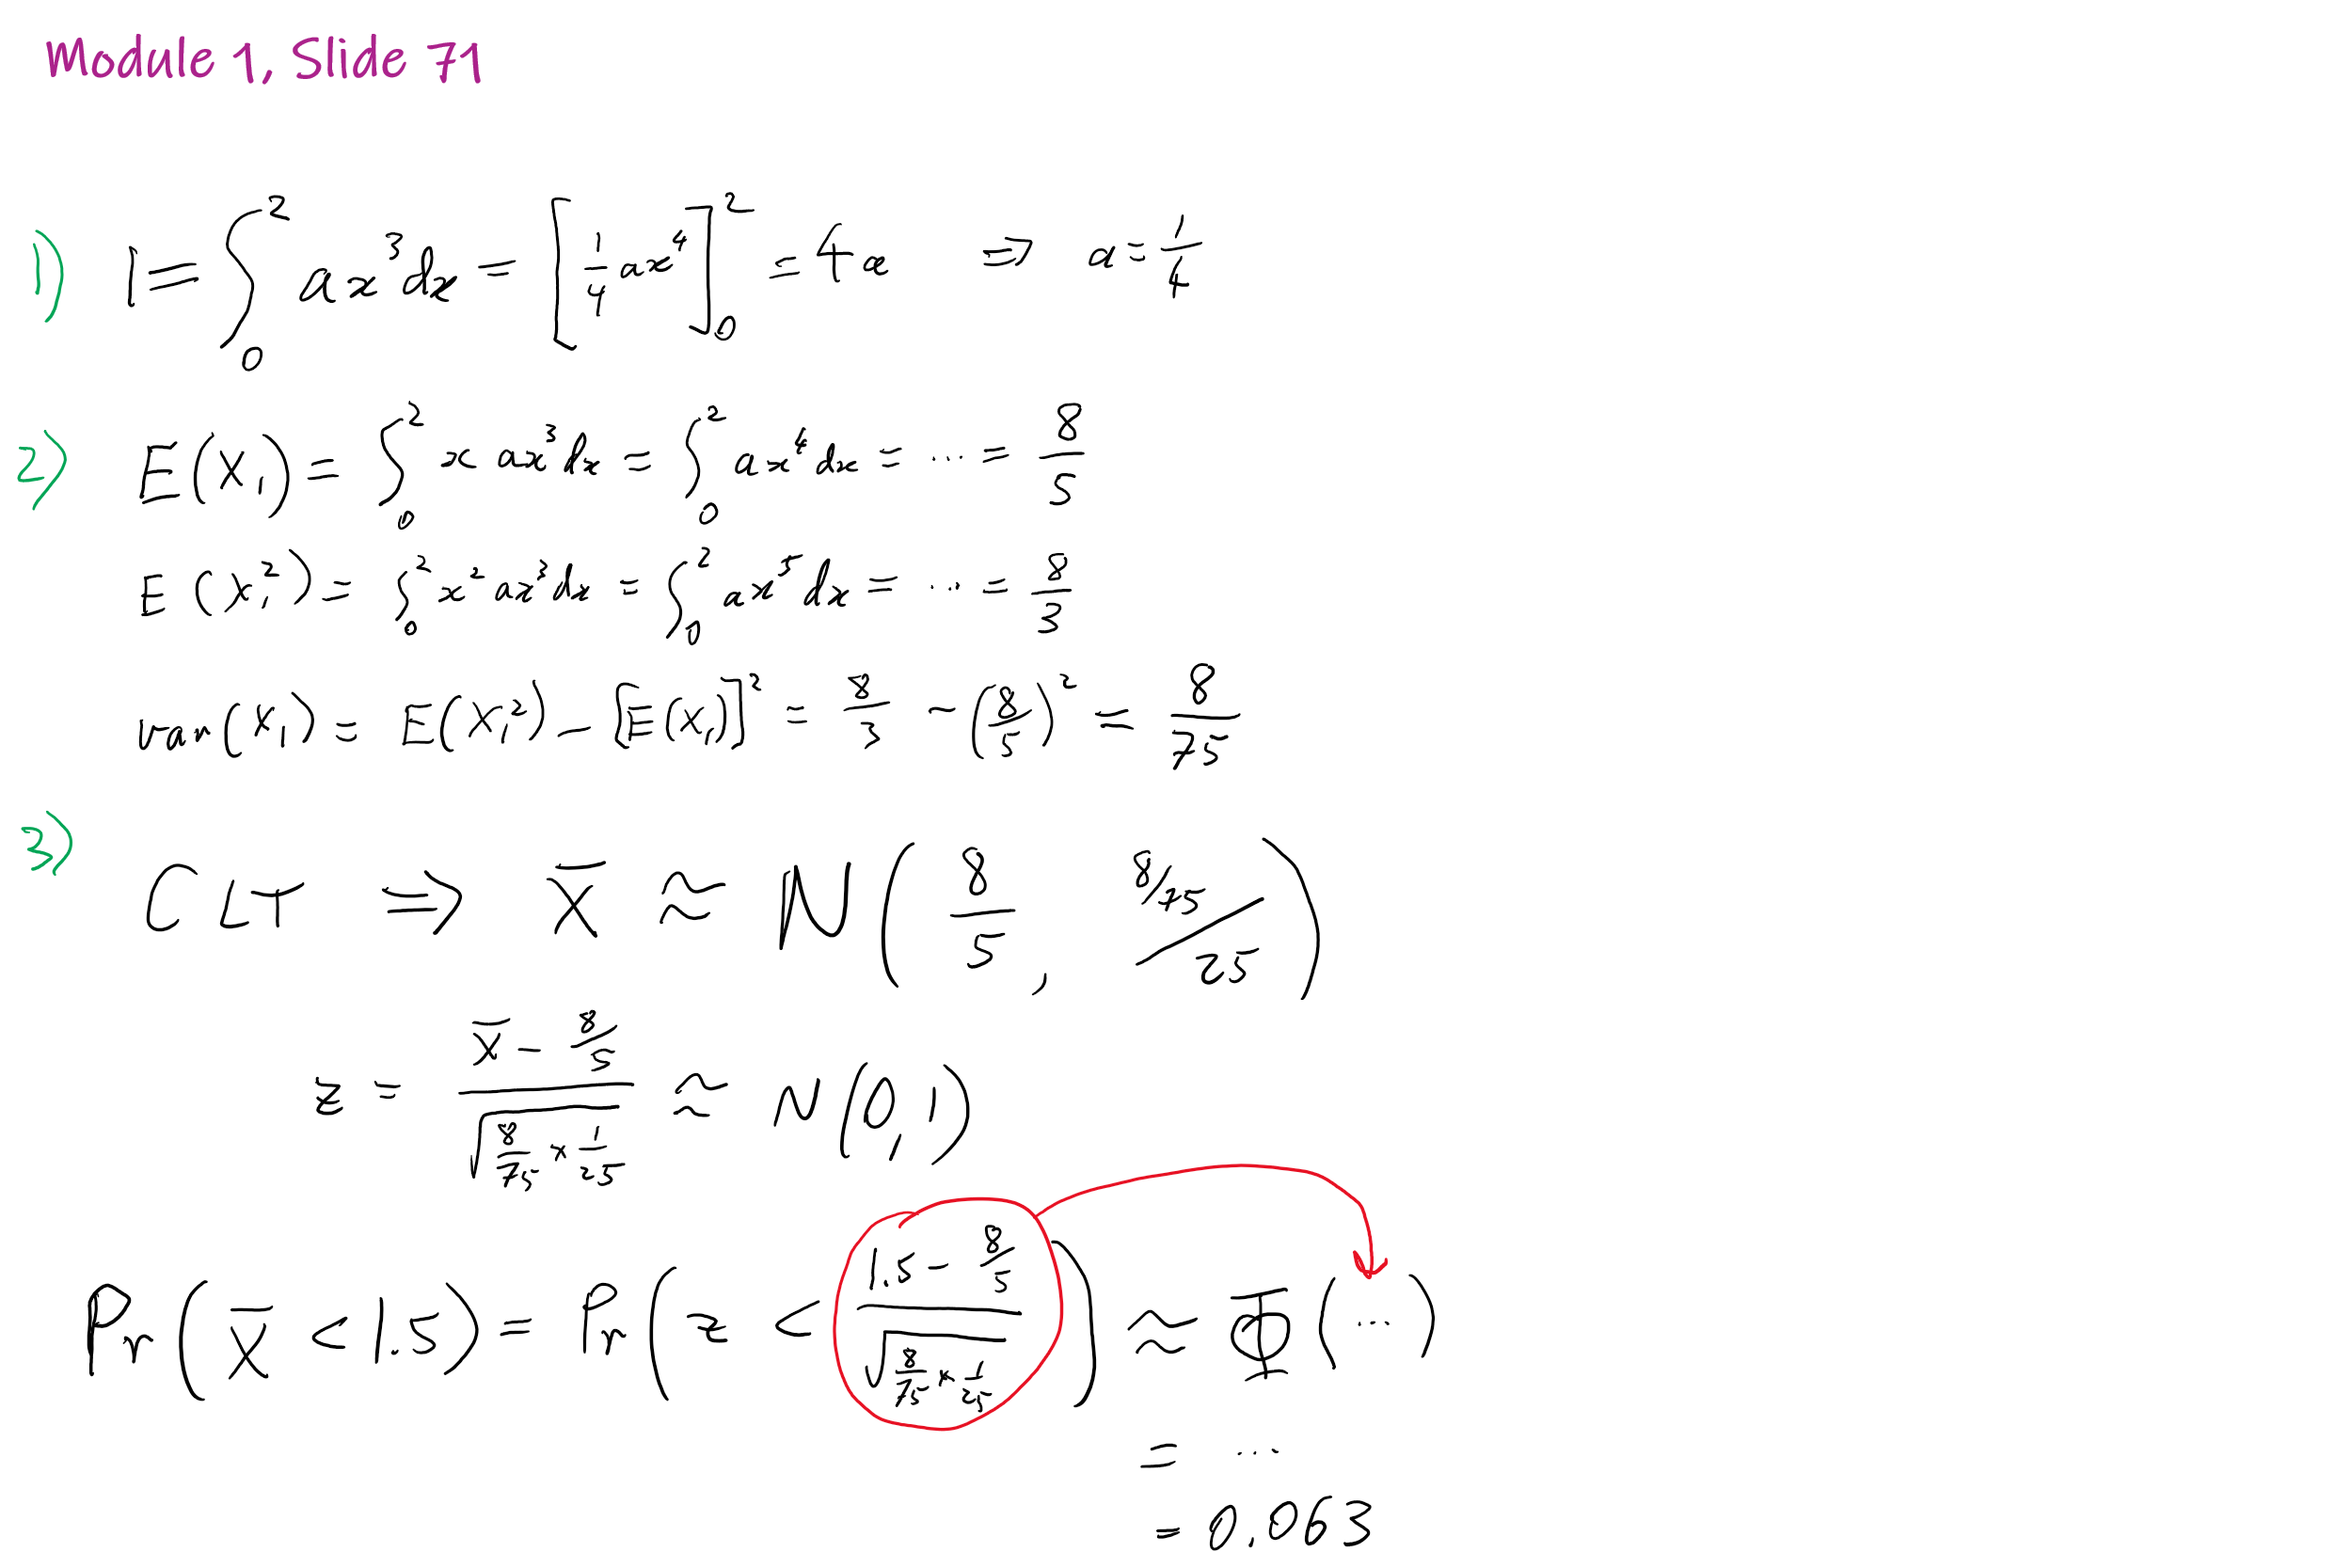 Module 1, Slide 71
1) 1 = ∫₀² ax³dx = [¼ax⁴]₀² = 4a ⇒ a = 1/4
2) E(X₁) = ∫₀² x ax³dx = ∫₀² ax⁴dx = ... = 8/5
E(X₁²) = ∫₀² x² ax³dx = ∫₀² ax⁵dx = ... = 8/3
var(X₁) = E(X₁²) - [E(X₁)]² = 8/3 - (8/5)² = 8/75
3) CLT ⇒ X̄ ≈ N(8/5, (8/75)/25)
z = (X̄ - 8/5)/√(8/75 × 1/25) ≈ N(0,1)
Pr(X̄ < 1.5) = Pr(z < (1.5 - 8/5)/√(8/75 × 1/25)) ≈ Φ(...)
= ...
= 0.063